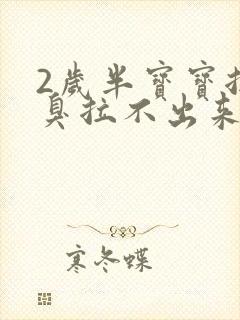 2歲半寶寶拉
臭拉不出來
寒冬蝶